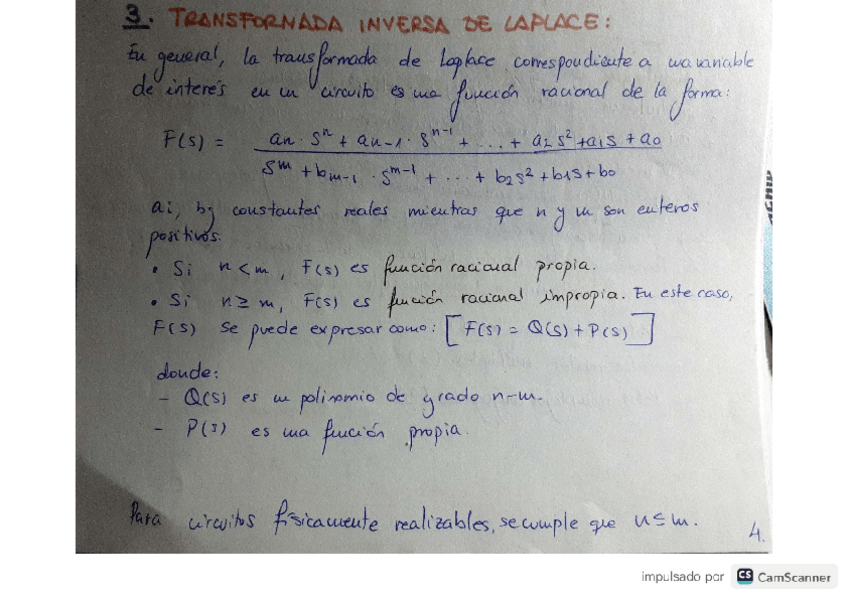 3. TRANSFORNADA INVERSA DE LAPLACE:
En general, la transformada de Laplace correspondiente a una variable
de interés en un circuito es una función racional de la forma:
F(s) = (an · s^n + an-1 · s^n-1 + ... + a2 s^2 + a1s + a0) / (s^m + bm-1 · s^m-1 + ... + b2s^2 + b1s + b0)
ai, bj constantes reales mientras que n y m son enteros
positivos.
• Si n < m, F(s) es función racional propia.
• Si n ≥ m, F(s) es función racional impropia. En este caso,
F(s) se puede expresar como: [F(s) = Q(s) + P(s)]
donde:
- Q(s) es un polinomio de grado n-m.
- P(s) es una función propia.
Para circuitos físicamente realizables, se cumple que n ≤ m.
4.
impulsado por CS CamScanner